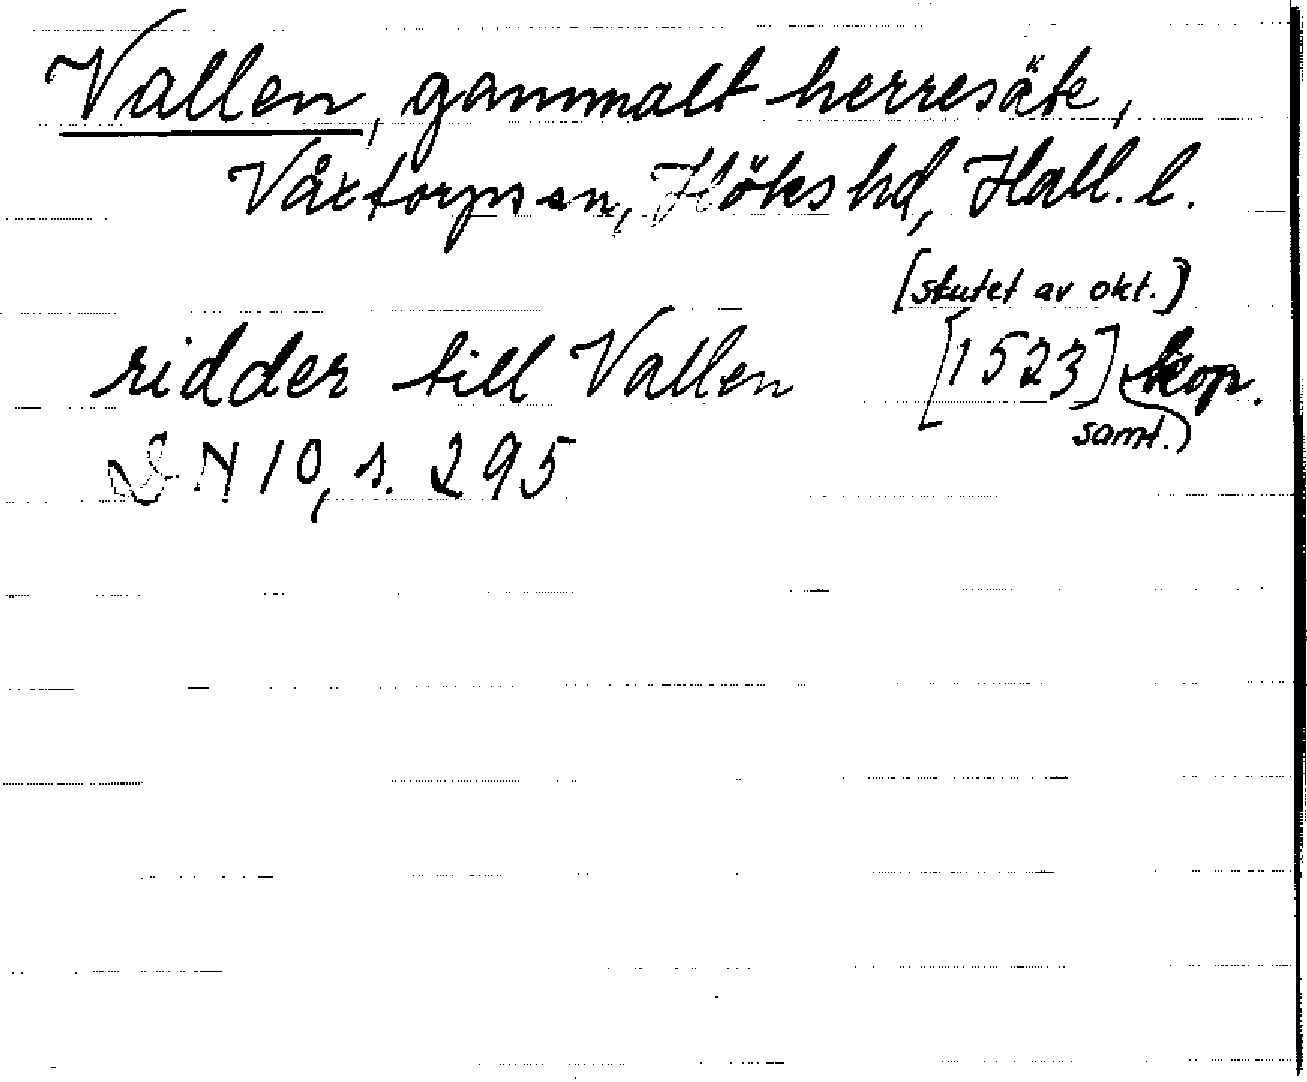 Vallen, gammalt herresäte,
Våxtorps sn, Höks hd, Hall. l.
[slutet av okt.]
ridder till Vallen [1523] kop.
samt.)
DN 10, s. 295